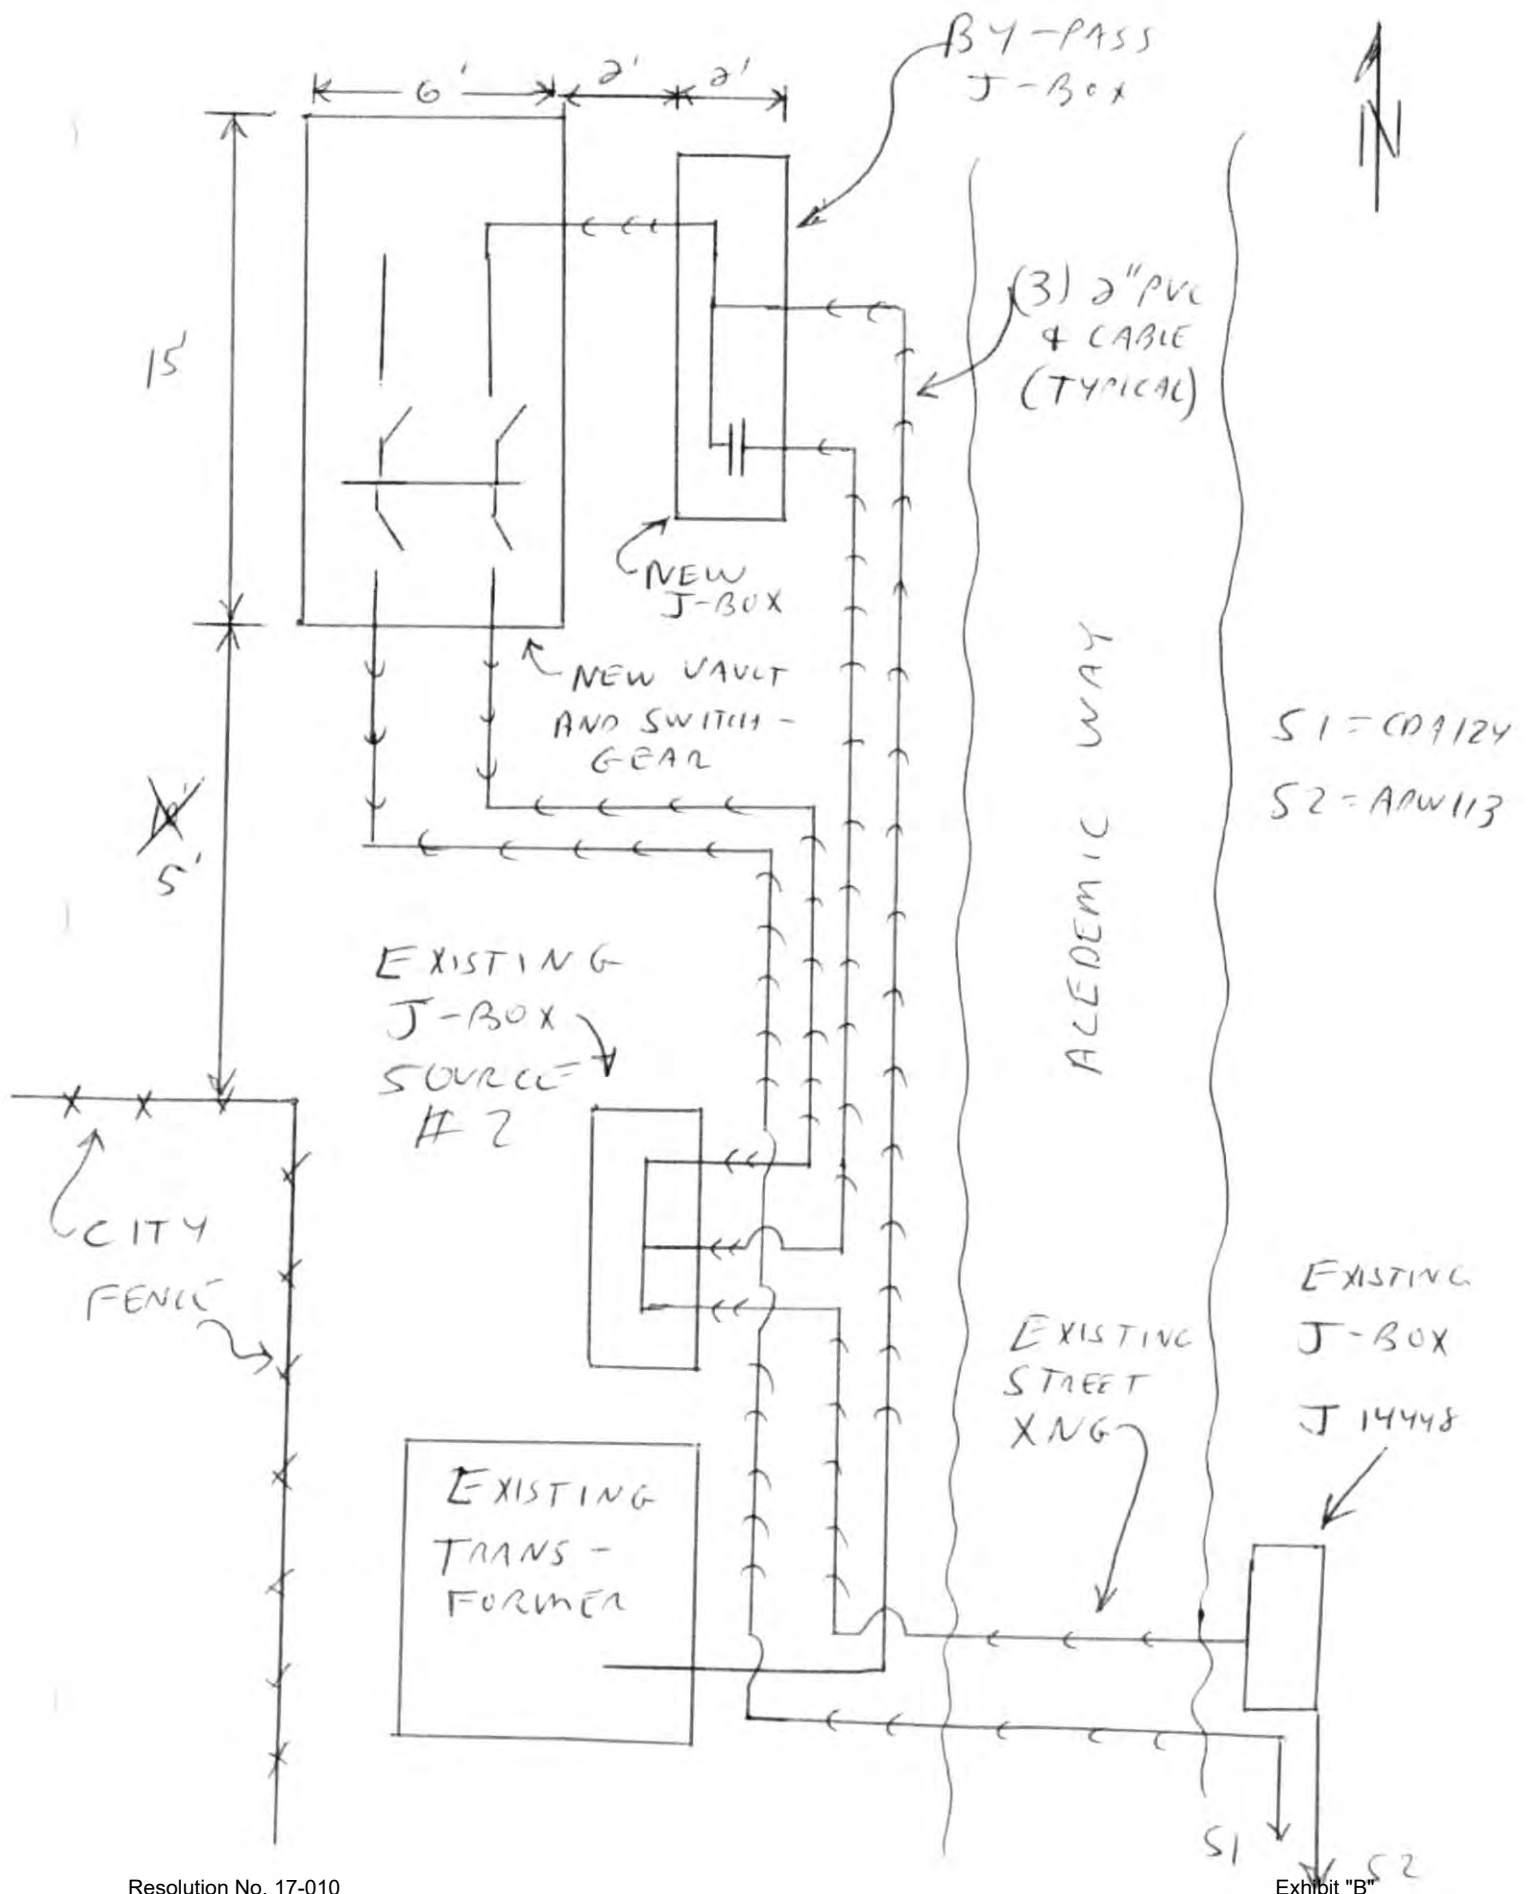 BY-PASS
J-BOX
6'
2'
2'
N
(3) 2" PVC
& CABLE
(TYPICAL)
15'
NEW
J-BOX
NEW VAULT
AND SWITCH-
GEAR
ACEDEMIC WAY
S1 = CDA124
S2 = APW113
5'
EXISTING
J-BOX
SOURCE
# 2
CITY
FENCE
EXISTING
STREET
XNG
EXISTING
J-BOX
J 14448
EXISTING
TRANS-
FORMER
S1
S2
Resolution No. 17-010
Exhibit "B"